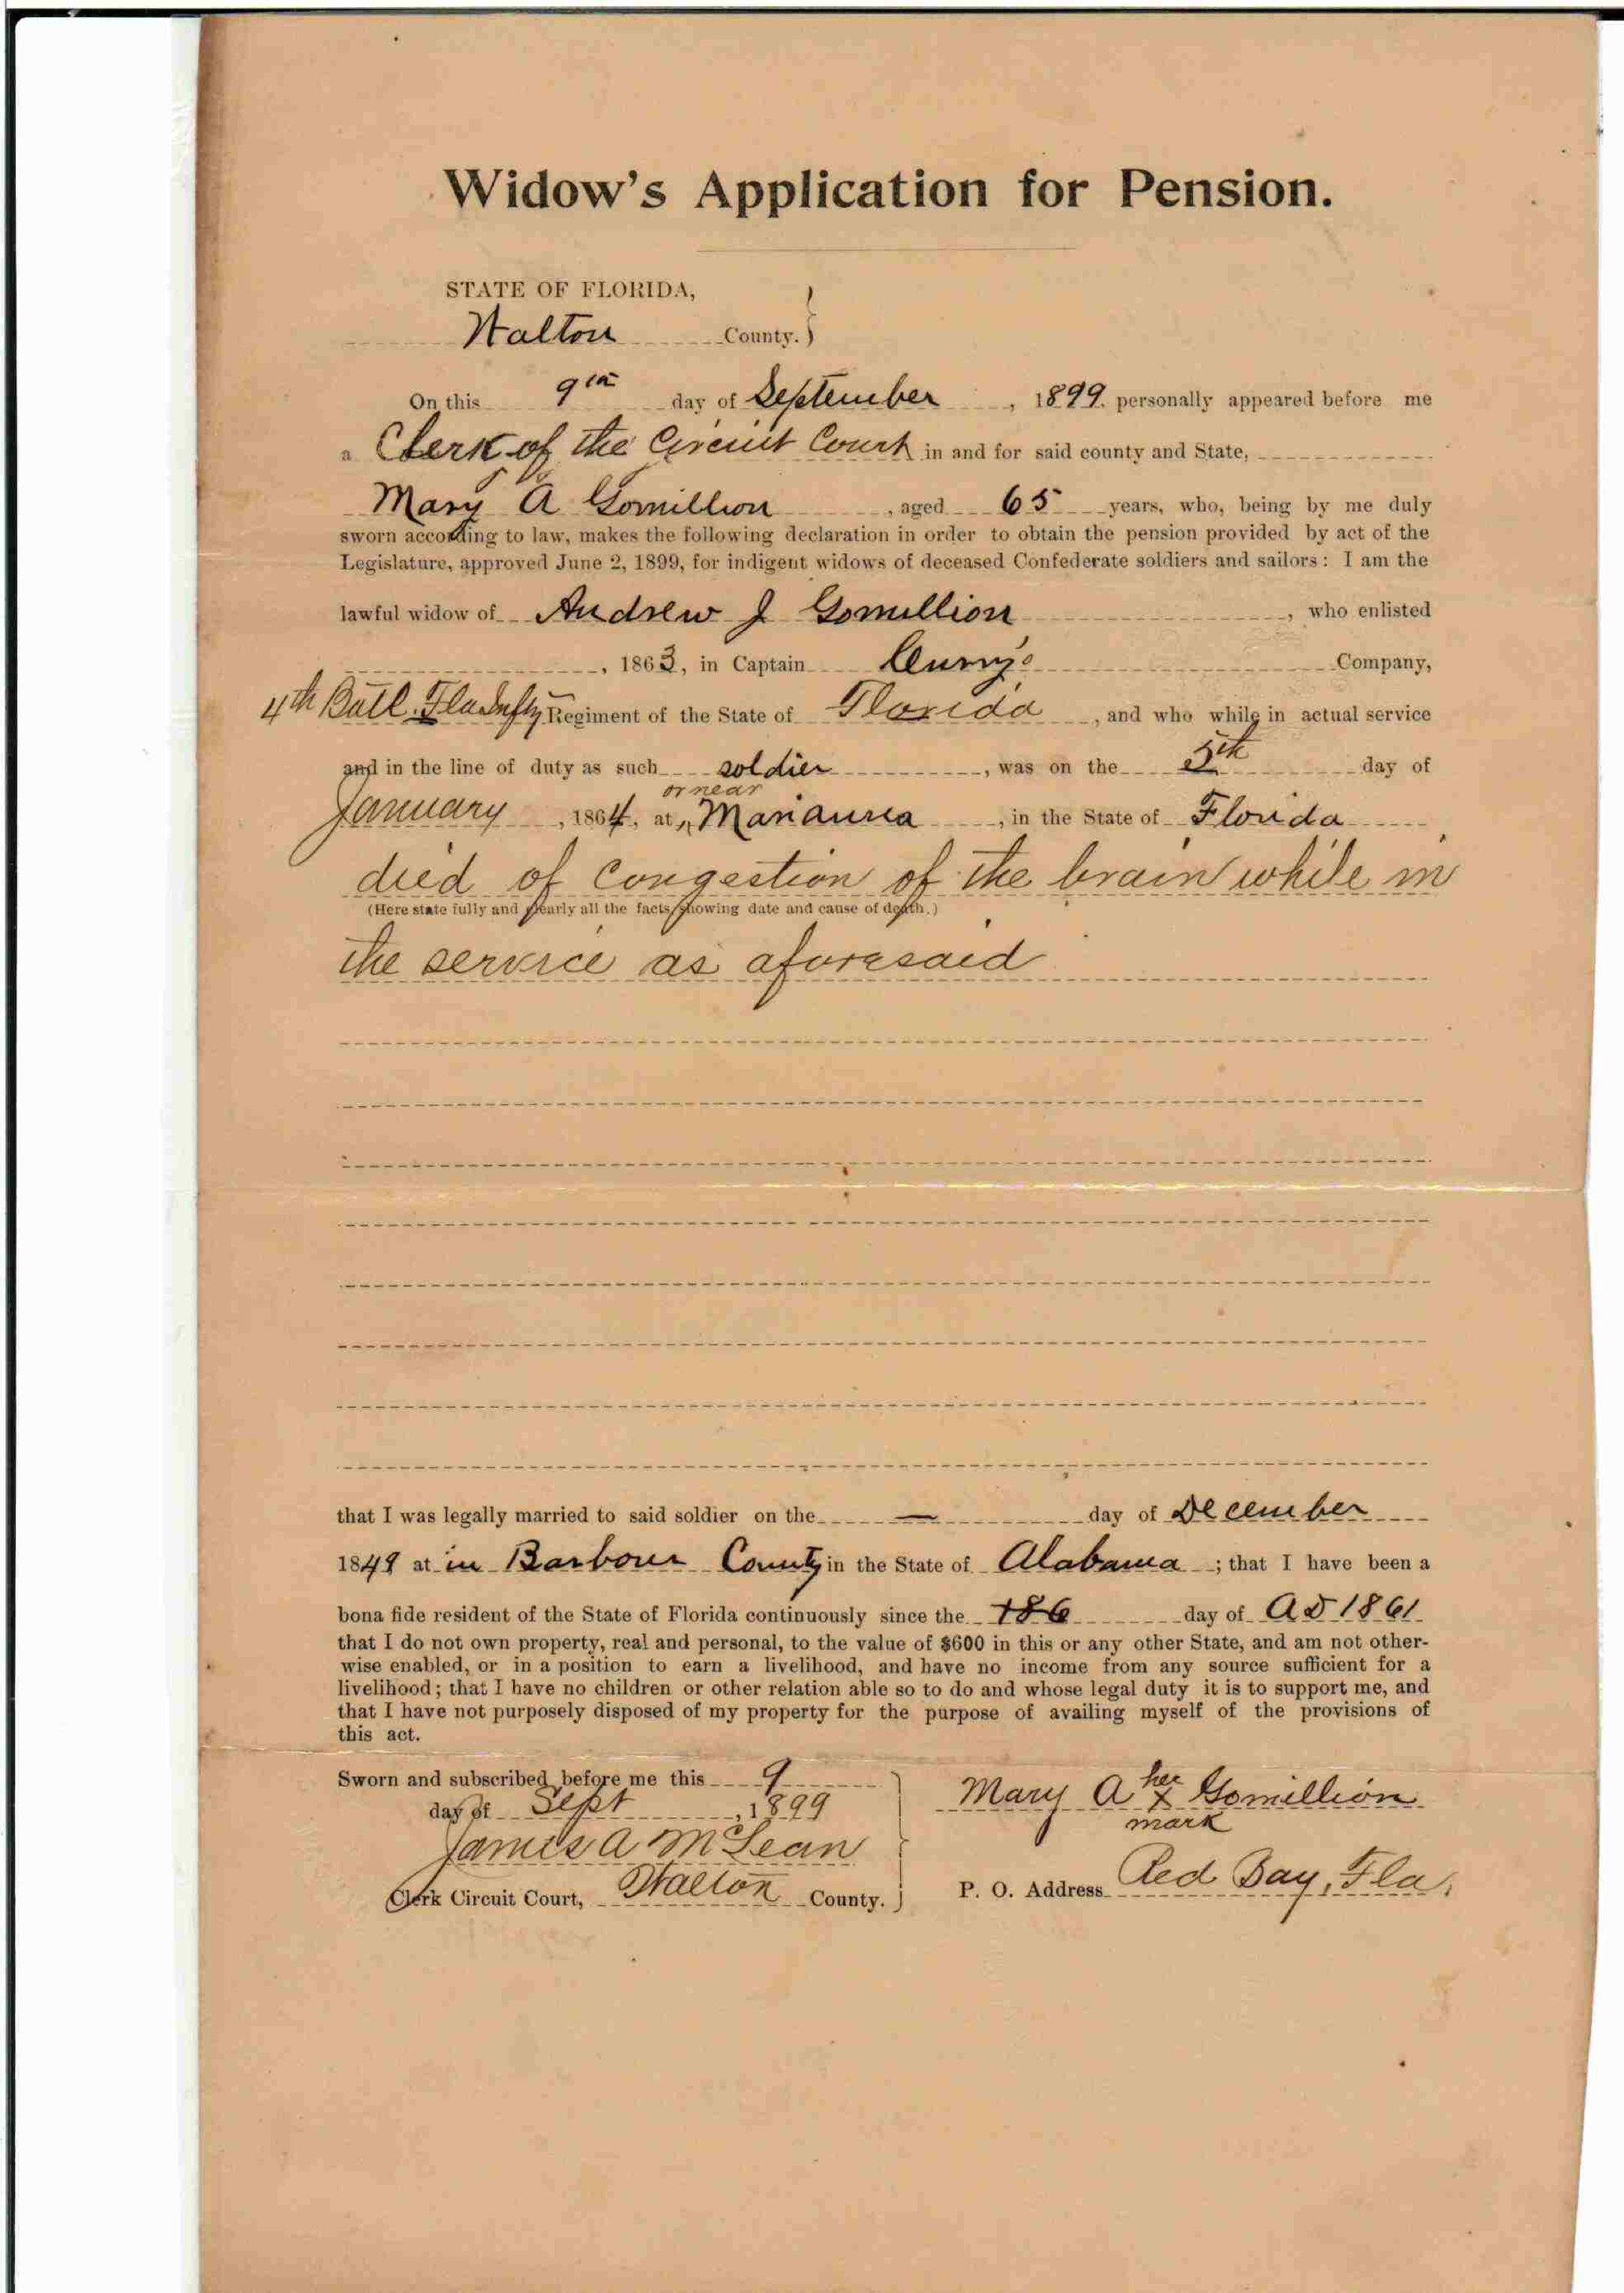 Widow's Application for Pension.
STATE OF FLORIDA,
Walton County.
On this 9th day of September, 1899, personally appeared before me
a Clerk of the Circuit Court in and for said county and State,
Mary A Gomillion, aged 65 years, who, being by me duly
sworn according to law, makes the following declaration in order to obtain the pension provided by act of the
Legislature, approved June 2, 1899, for indigent widows of deceased Confederate soldiers and sailors: I am the
lawful widow of Andrew J Gomillion, who enlisted
, 1863, in Captain Curry's Company,
4th Batl. Fla Infty Regiment of the State of Florida, and who while in actual service
and in the line of duty as such soldier, was on the 5th day of
or near
January, 1864, at Marianna, in the State of Florida
died of congestion of the brain while in
(Here state fully and clearly all the facts showing date and cause of death.)
the service as aforesaid
that I was legally married to said soldier on the — day of December
1849 at in Barbour County in the State of Alabama; that I have been a
bona fide resident of the State of Florida continuously since the 186 day of AD 1861
that I do not own property, real and personal, to the value of $600 in this or any other State, and am not other-
wise enabled, or in a position to earn a livelihood, and have no income from any source sufficient for a
livelihood; that I have no children or other relation able so to do and whose legal duty it is to support me, and
that I have not purposely disposed of my property for the purpose of availing myself of the provisions of
this act.
Sworn and subscribed before me this 9
day of Sept, 1899
James A McLean
Clerk Circuit Court, Walton County.
her
Mary A x Gomillion
mark
P. O. Address Red Bay, Fla.